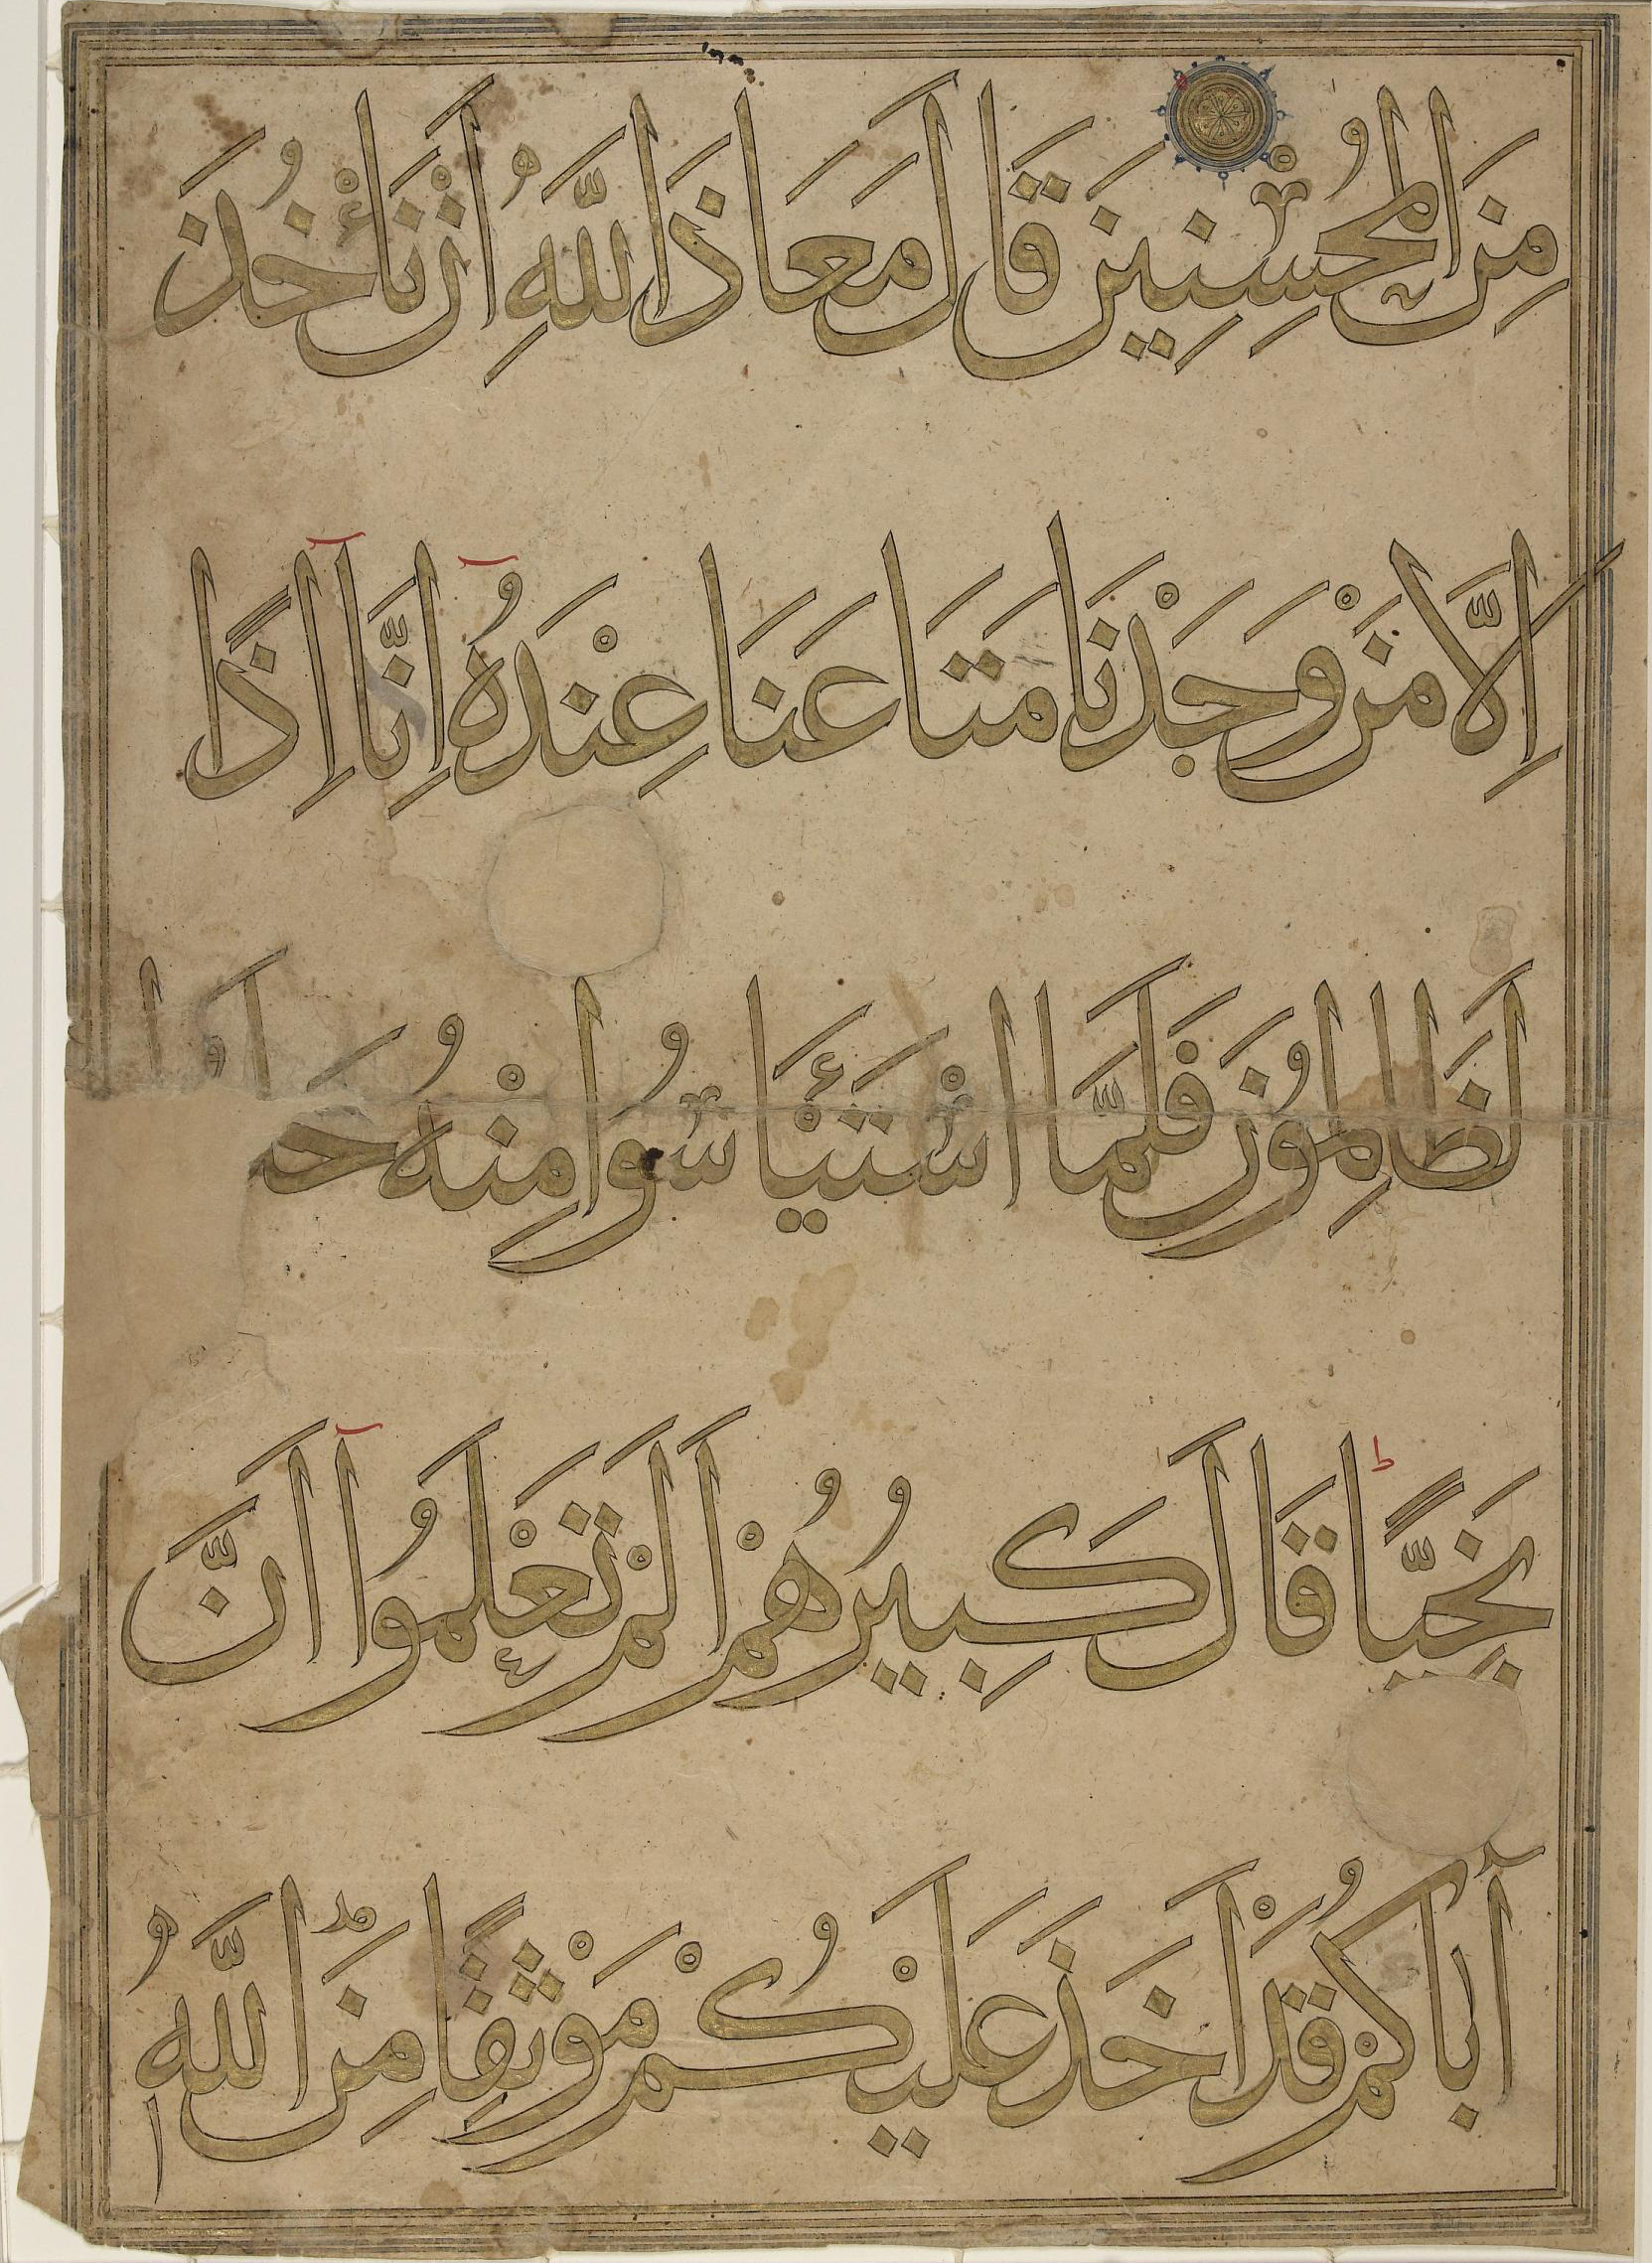 مِنَ الْمُحْسِنِينَ قَالَ مَعَاذَ اللَّهِ أَنْ نَأْخُذَ
إِلَّا مَنْ وَجَدْنَا مَتَاعَنَا عِنْدَهُ إِنَّا إِذًا
لَظَالِمُونَ فَلَمَّا اسْتَيْأَسُوا مِنْهُ
نَجِيًّا قَالَ كَبِيرُهُمْ أَلَمْ تَعْلَمُوا أَنَّ
أَبَاكُمْ قَدْ أَخَذَ عَلَيْكُمْ مَوْثِقًا مِنَ اللَّهِ